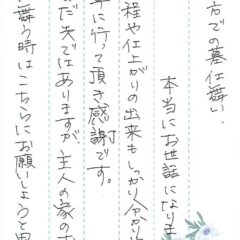 方での墓仕舞い.
本当にお世話になりま
程や仕上がりの出来もしっかり分かり
に行って頂き感謝です。
だ夫ではありますが、主人の家のお
舞う時はこちらにお願いしようと思